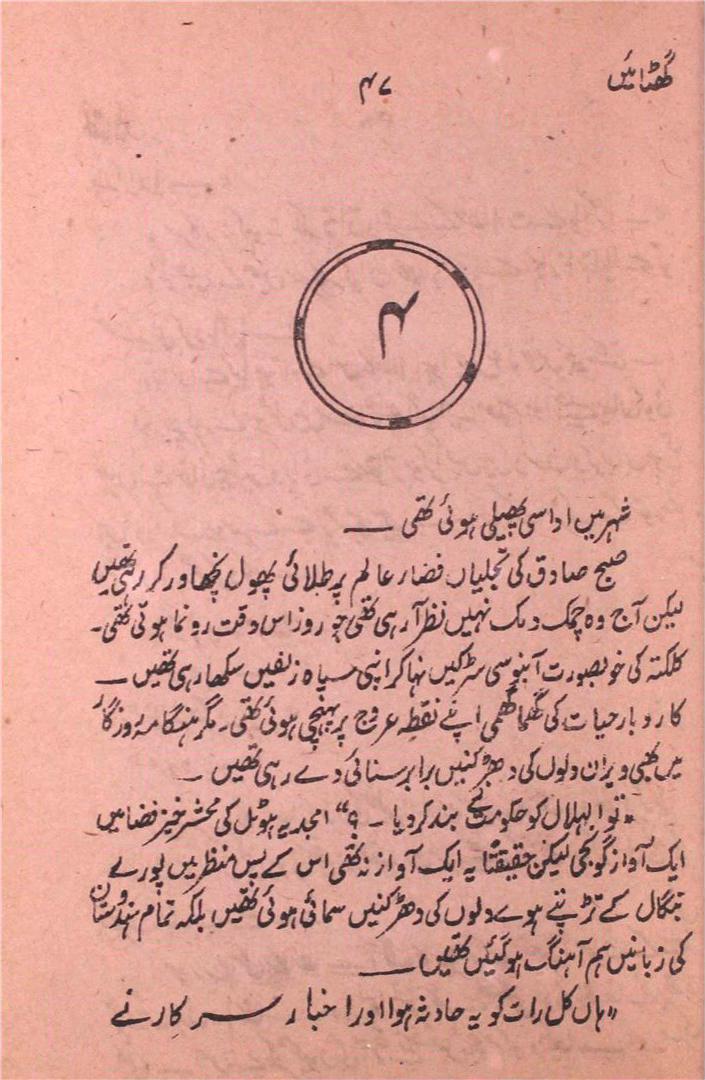 گھٹائیں
۴۷
۴
شہر میں اداسی پھیلی ہوئی تھی —
صبح صادق کی تجلیاں فضاء عالم پر طلائی پھول نچھاور کر رہی تھیں
لیکن آج وہ چمک دمک نہیں نظر آ رہی تھی جو روز اس وقت رونما ہوتی تھی۔
کلکتہ کی خوبصورت آبنوسی سڑکیں نہا کر اپنی سیاہ زلفیں سکھا رہی تھیں —
کاروبار حیات کی گھما گھمی اپنے نقطہ عروج پر پہنچی ہوئی تھی۔ مگر ہنگامہ روزگار
میں بھی ویران دلوں کی دھڑکنیں برابر سنائی دے رہی تھیں —
"تو الہلال کو حکومت نے بند کر دیا — ؟" امجدیہ ہوٹل کی محشر خیز فضا میں
ایک آواز گونجی لیکن حقیقتاً یہ ایک آواز نہ تھی اس کے پس منظر میں پورے
بنگال کے تڑپتے ہوے دلوں کی دھڑکنیں سمائی ہوئی تھیں بلکہ تمام ہندوستان
کی زبانیں ہم آہنگ ہو گئیں تھیں —
"ہاں کل رات کو یہ حادثہ ہوا اور اخبار سرکار نے